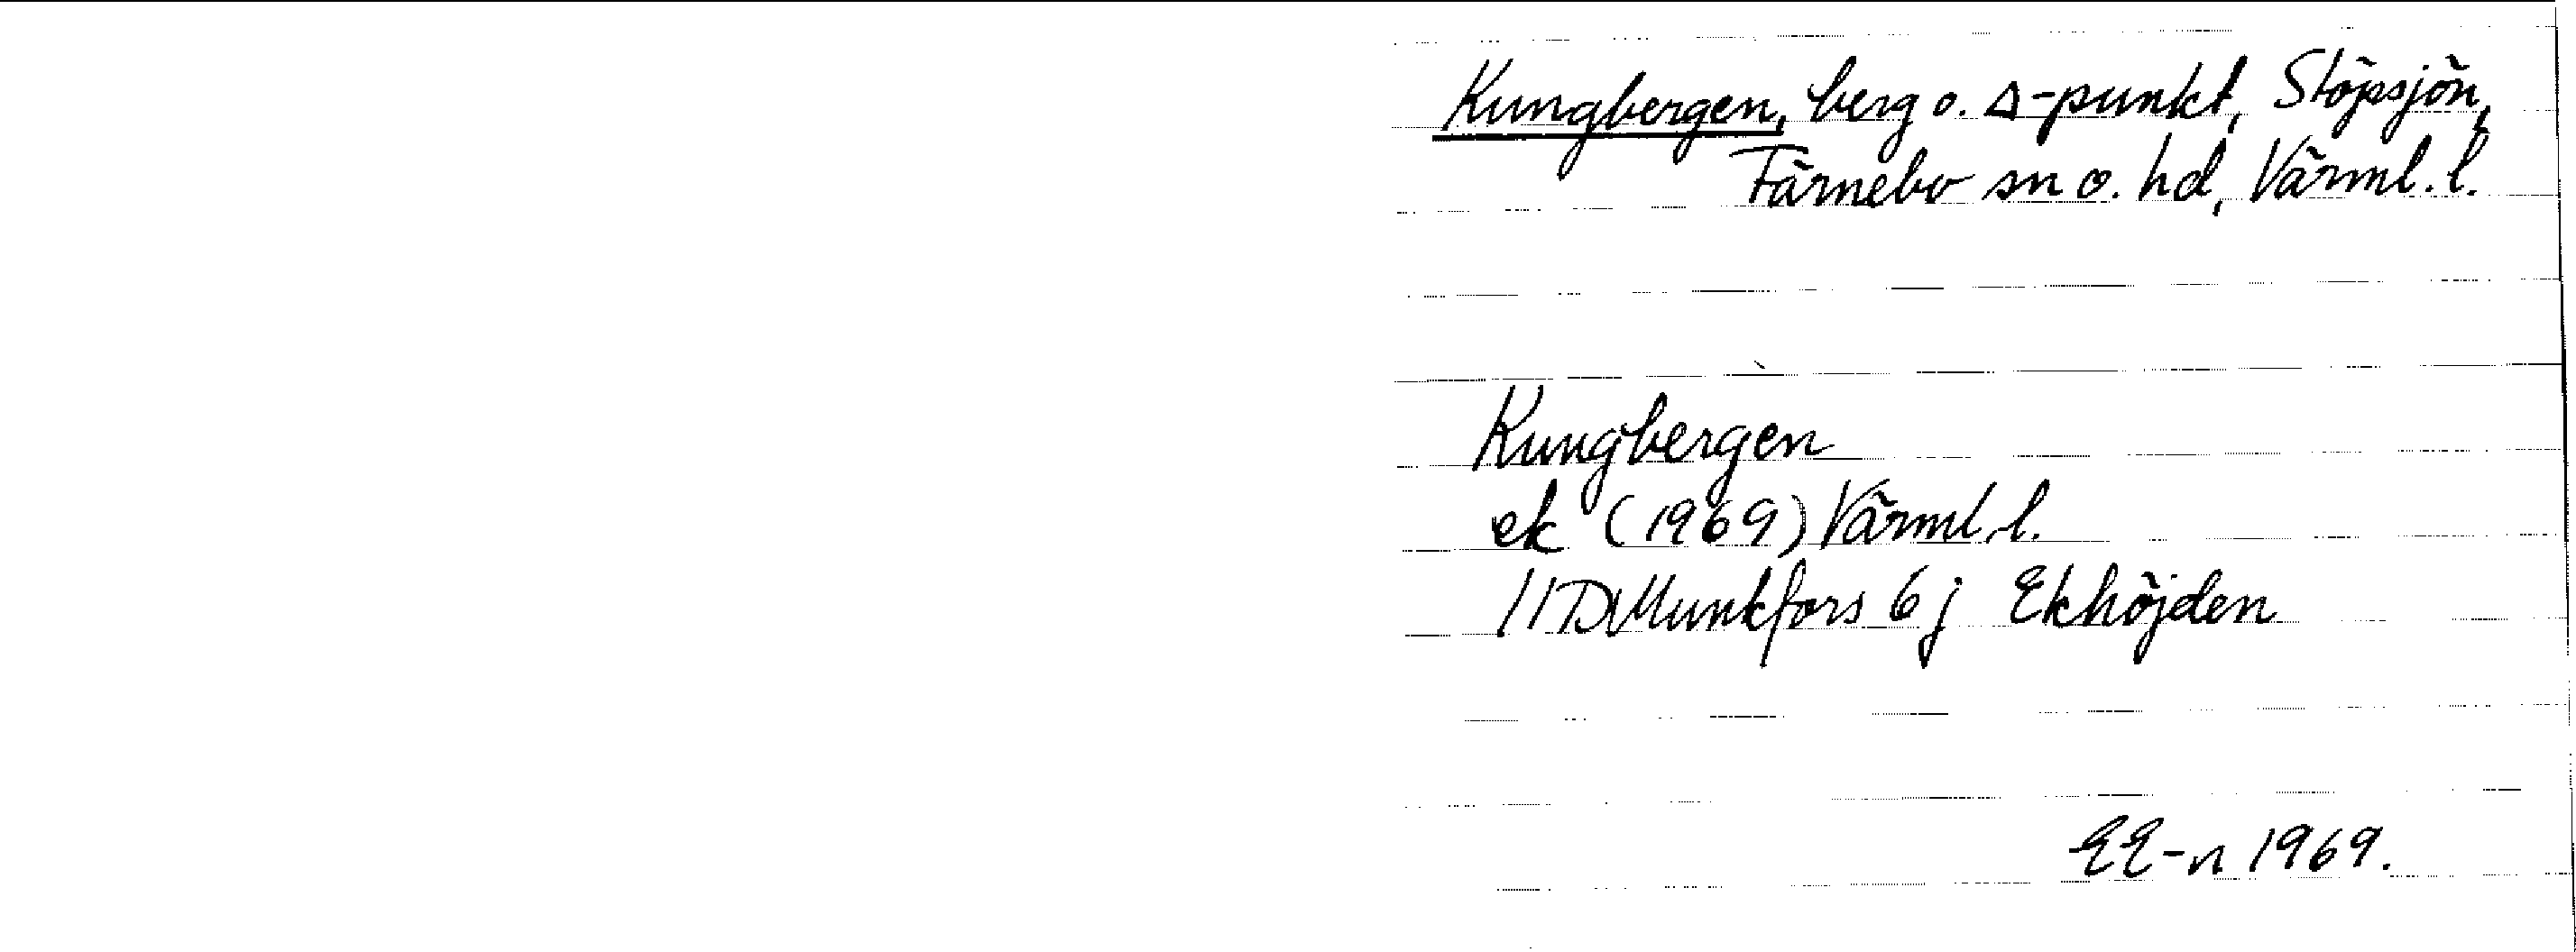 Kungbergen, berg o. △-punkt, Stöpsjön,
Färnebo sn o. hd, Värml. l.
Kungbergen
ek (1969) Värml. l.
11D Munkfors 6 j Ekhöjden
EE-n 1969.